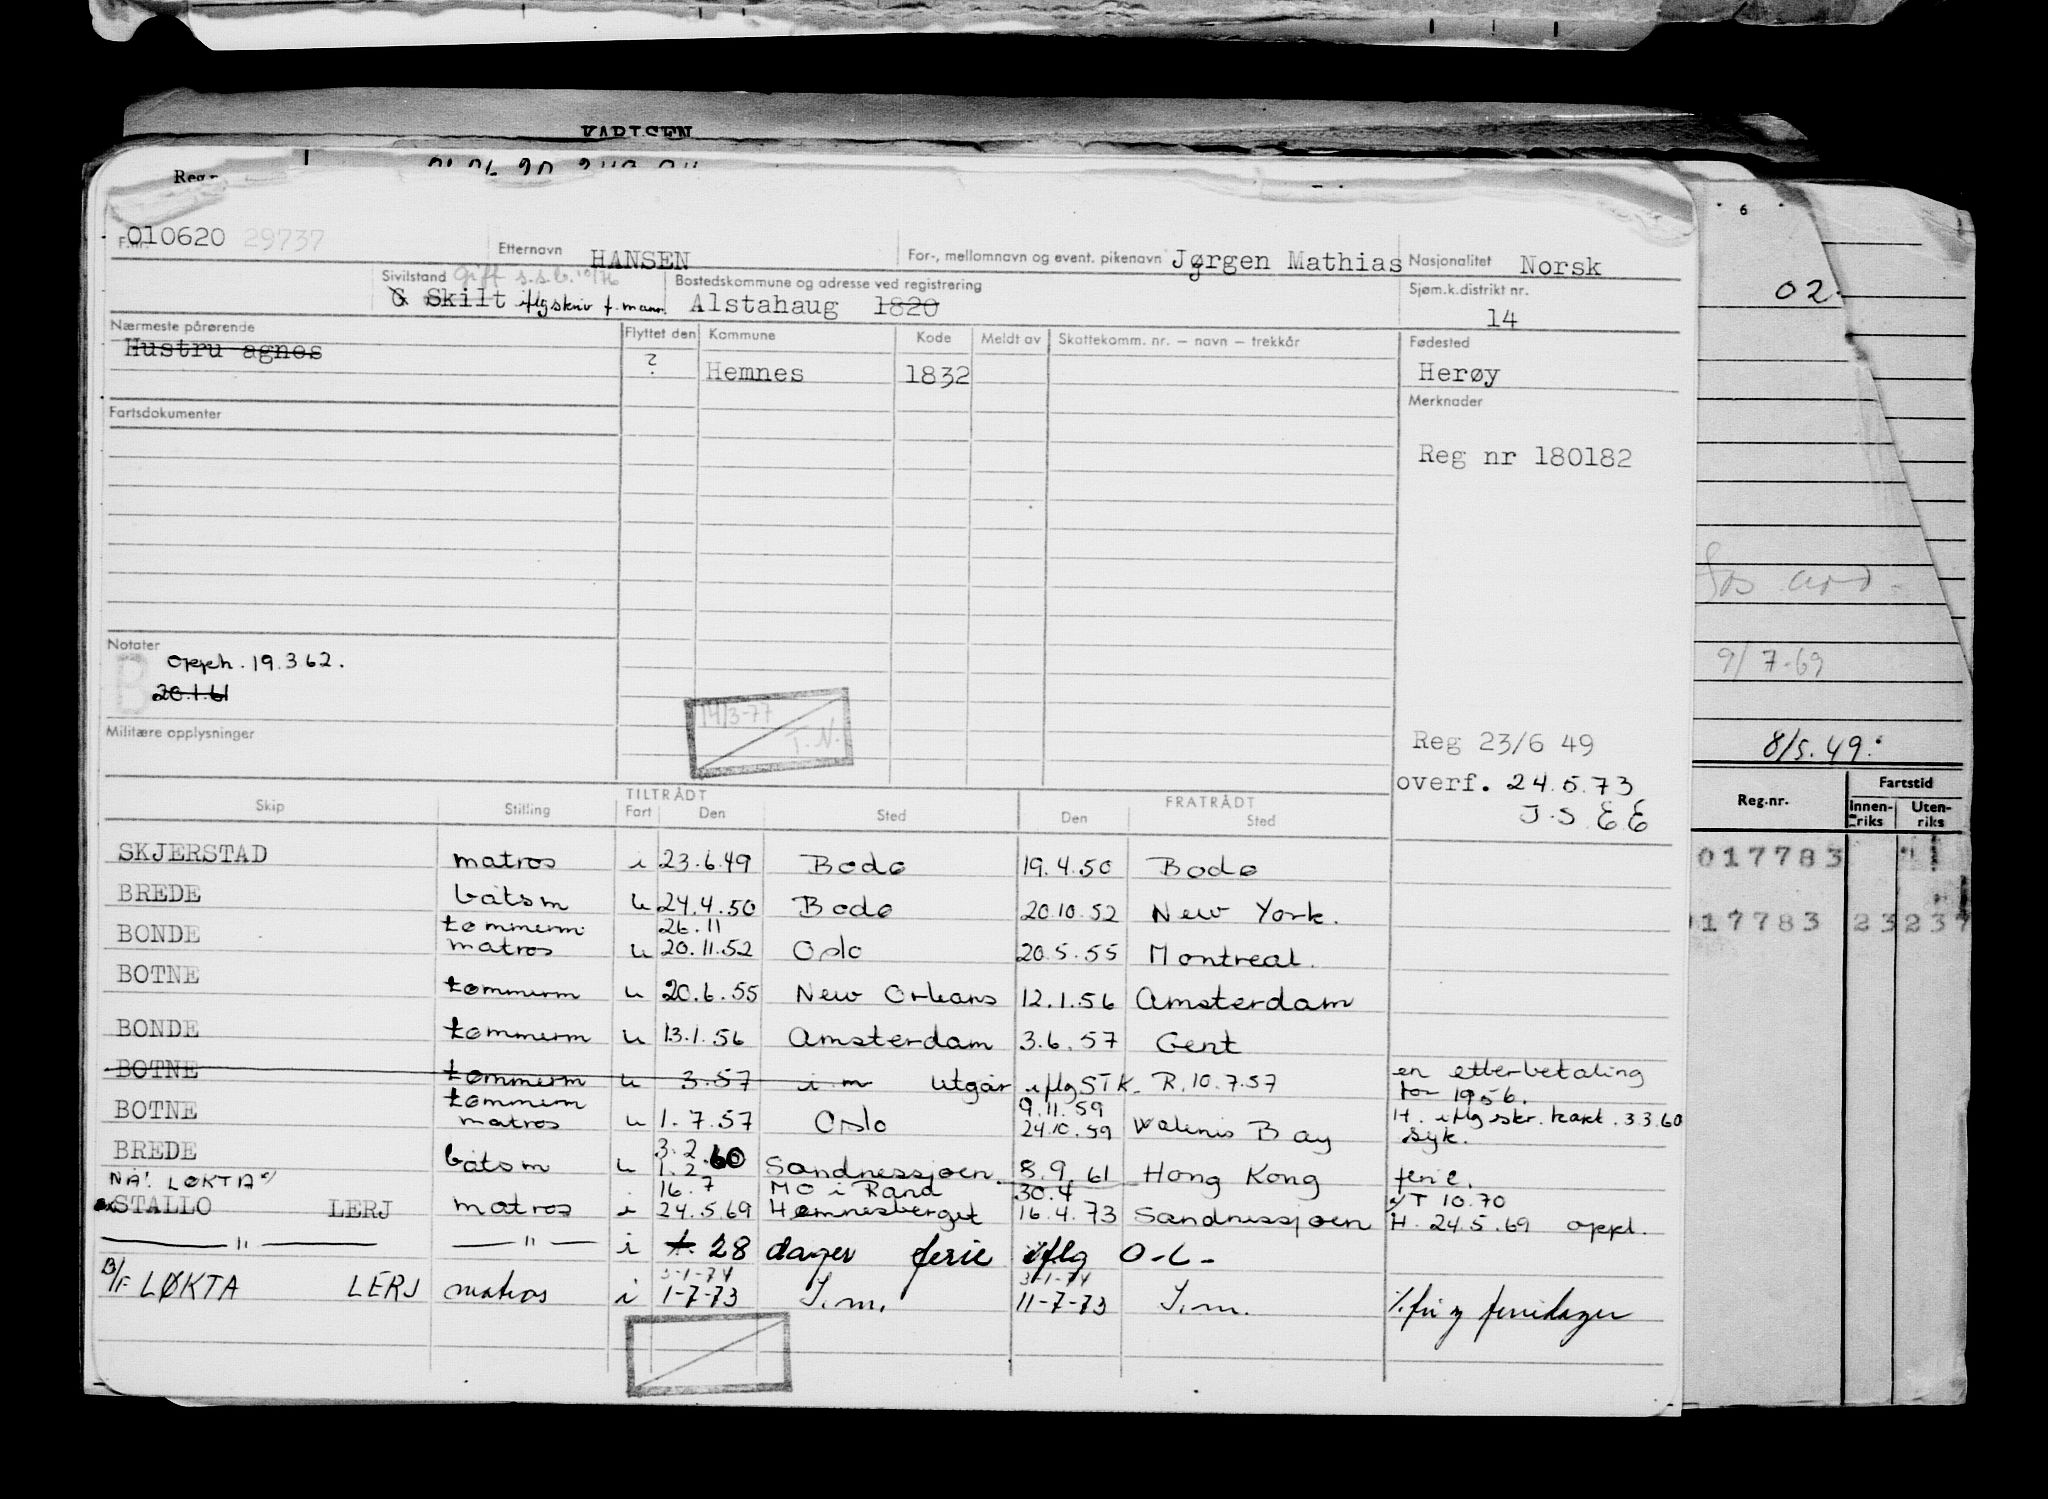 KARLSEN
Reg.nr
F.nr. 010620 29737 Etternavn HANSEN For-, mellomnavn og event. pikenavn Jørgen Mathias Nasjonalitet Norsk
Sivilstand Gift s.s.b. 10/76 Bostedskommune og adresse ved registrering Sjøm.k.distrikt nr.
G Skilt iflg skriv f. mann. Alstahaug 1820 14
Nærmeste pårørende Flyttet den Kommune Kode Meldt av Skattekomm. nr. — navn — trekkår Fødested
Hustru agnes ? Hemnes 1832 Herøy
Fartsdokumenter Merknader
Reg nr 180182
Notater
B opph. 19.3 62.
20.1.61
14/3-77
T.N.
Militære opplysninger
Reg 23/6 49
overf. 24.5.73
J.S EE
TILTRÅDT FRATRÅDT
Skip Stilling Fart Den Sted Den Sted
SKJERSTAD matros i 23.6.49 Bodø 19.4.50 Bodø
BREDE båtsm u 24.4.50 Bodø 20.10.52 New York.
tømmerm 26.11
BONDE matros u 20.11.52 Oslo 20.5.55 Montreal.
BOTNE tømmerm u 20.6.55 New Orleans 12.1.56 Amsterdam
BONDE tømmerm u 13.1.56 Amsterdam 3.6.57 Gent
BOTNE tømmerm u 3.57 i m utgår iflg STK. R. 10.7.57 en etterbetaling for 1956.
tømmerm 9.11.59
BOTNE matros u 1.7.57 Oslo 24.10.59 Walenis Bay H. iflg skr. kart. 3.3.60 syk.
3.2.60
BREDE båtsm u 1.2 Sandnessjøen. 8.9.61 Hong Kong ferie.
NÅ: LØKTA 16.7 MO i Rana 30.4 T 10.70
STALLO LERJ matros i 24.5.69 Hemnesberget 16.4.73 Sandnessjøen H. 24.5.69 oppl.
— " — — " — i 28 dager ferie iflg O-L-
3-1-74 3-1-74
B/F LØKTA LERJ matros i 1-7-73 I.m. 11-7-73 I.m. % fri og feriedager
6
02.
9/7-69
8/5.49.
Reg.nr. Fartstid
Innenriks Utenriks
017783
17783 23 237